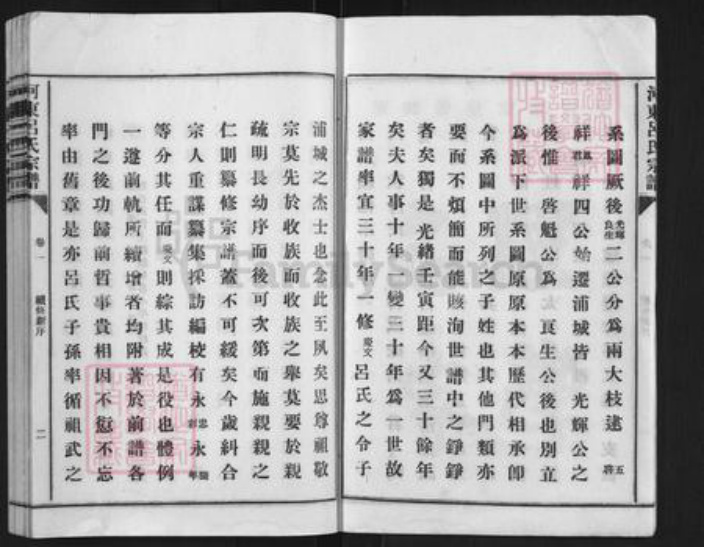 河東呂氏宗譜
系圖厥後光輝良生二公分爲兩大枝逮五
祥祥四公始遷浦城皆 光輝公之
後惟 啓魁公爲 良生公後也別立
爲派下世系圖原原本本歷代相承卽
今系圖中所列之子姓也其他門類亦
要而不煩簡而能賅洵世譜中之錚錚
者矣獨是 光緒壬寅距今又三十餘年
矣夫人事十年一變三十年爲一世故
家譜率宜三十年一修慶文呂氏之令子
浦城之杰士也念此至夙矣思尊祖敬
宗莫先於收族而收族之舉莫要於親
疏明長幼序而後可次第而施親親之
仁則纂修宗譜蓋不可緩矣今歲糾合
宗人重謀纂集採訪編校有永忠永年
等分其任而慶文則綜其成是役也體例
一遵前軌所續增者均附著於前譜各
門之後功歸前哲事貴相因不愆不忘
率由舊章是亦呂氏子孫率循祖武之
河東呂氏宗譜
卷一
續修新序
二
FamilySearch